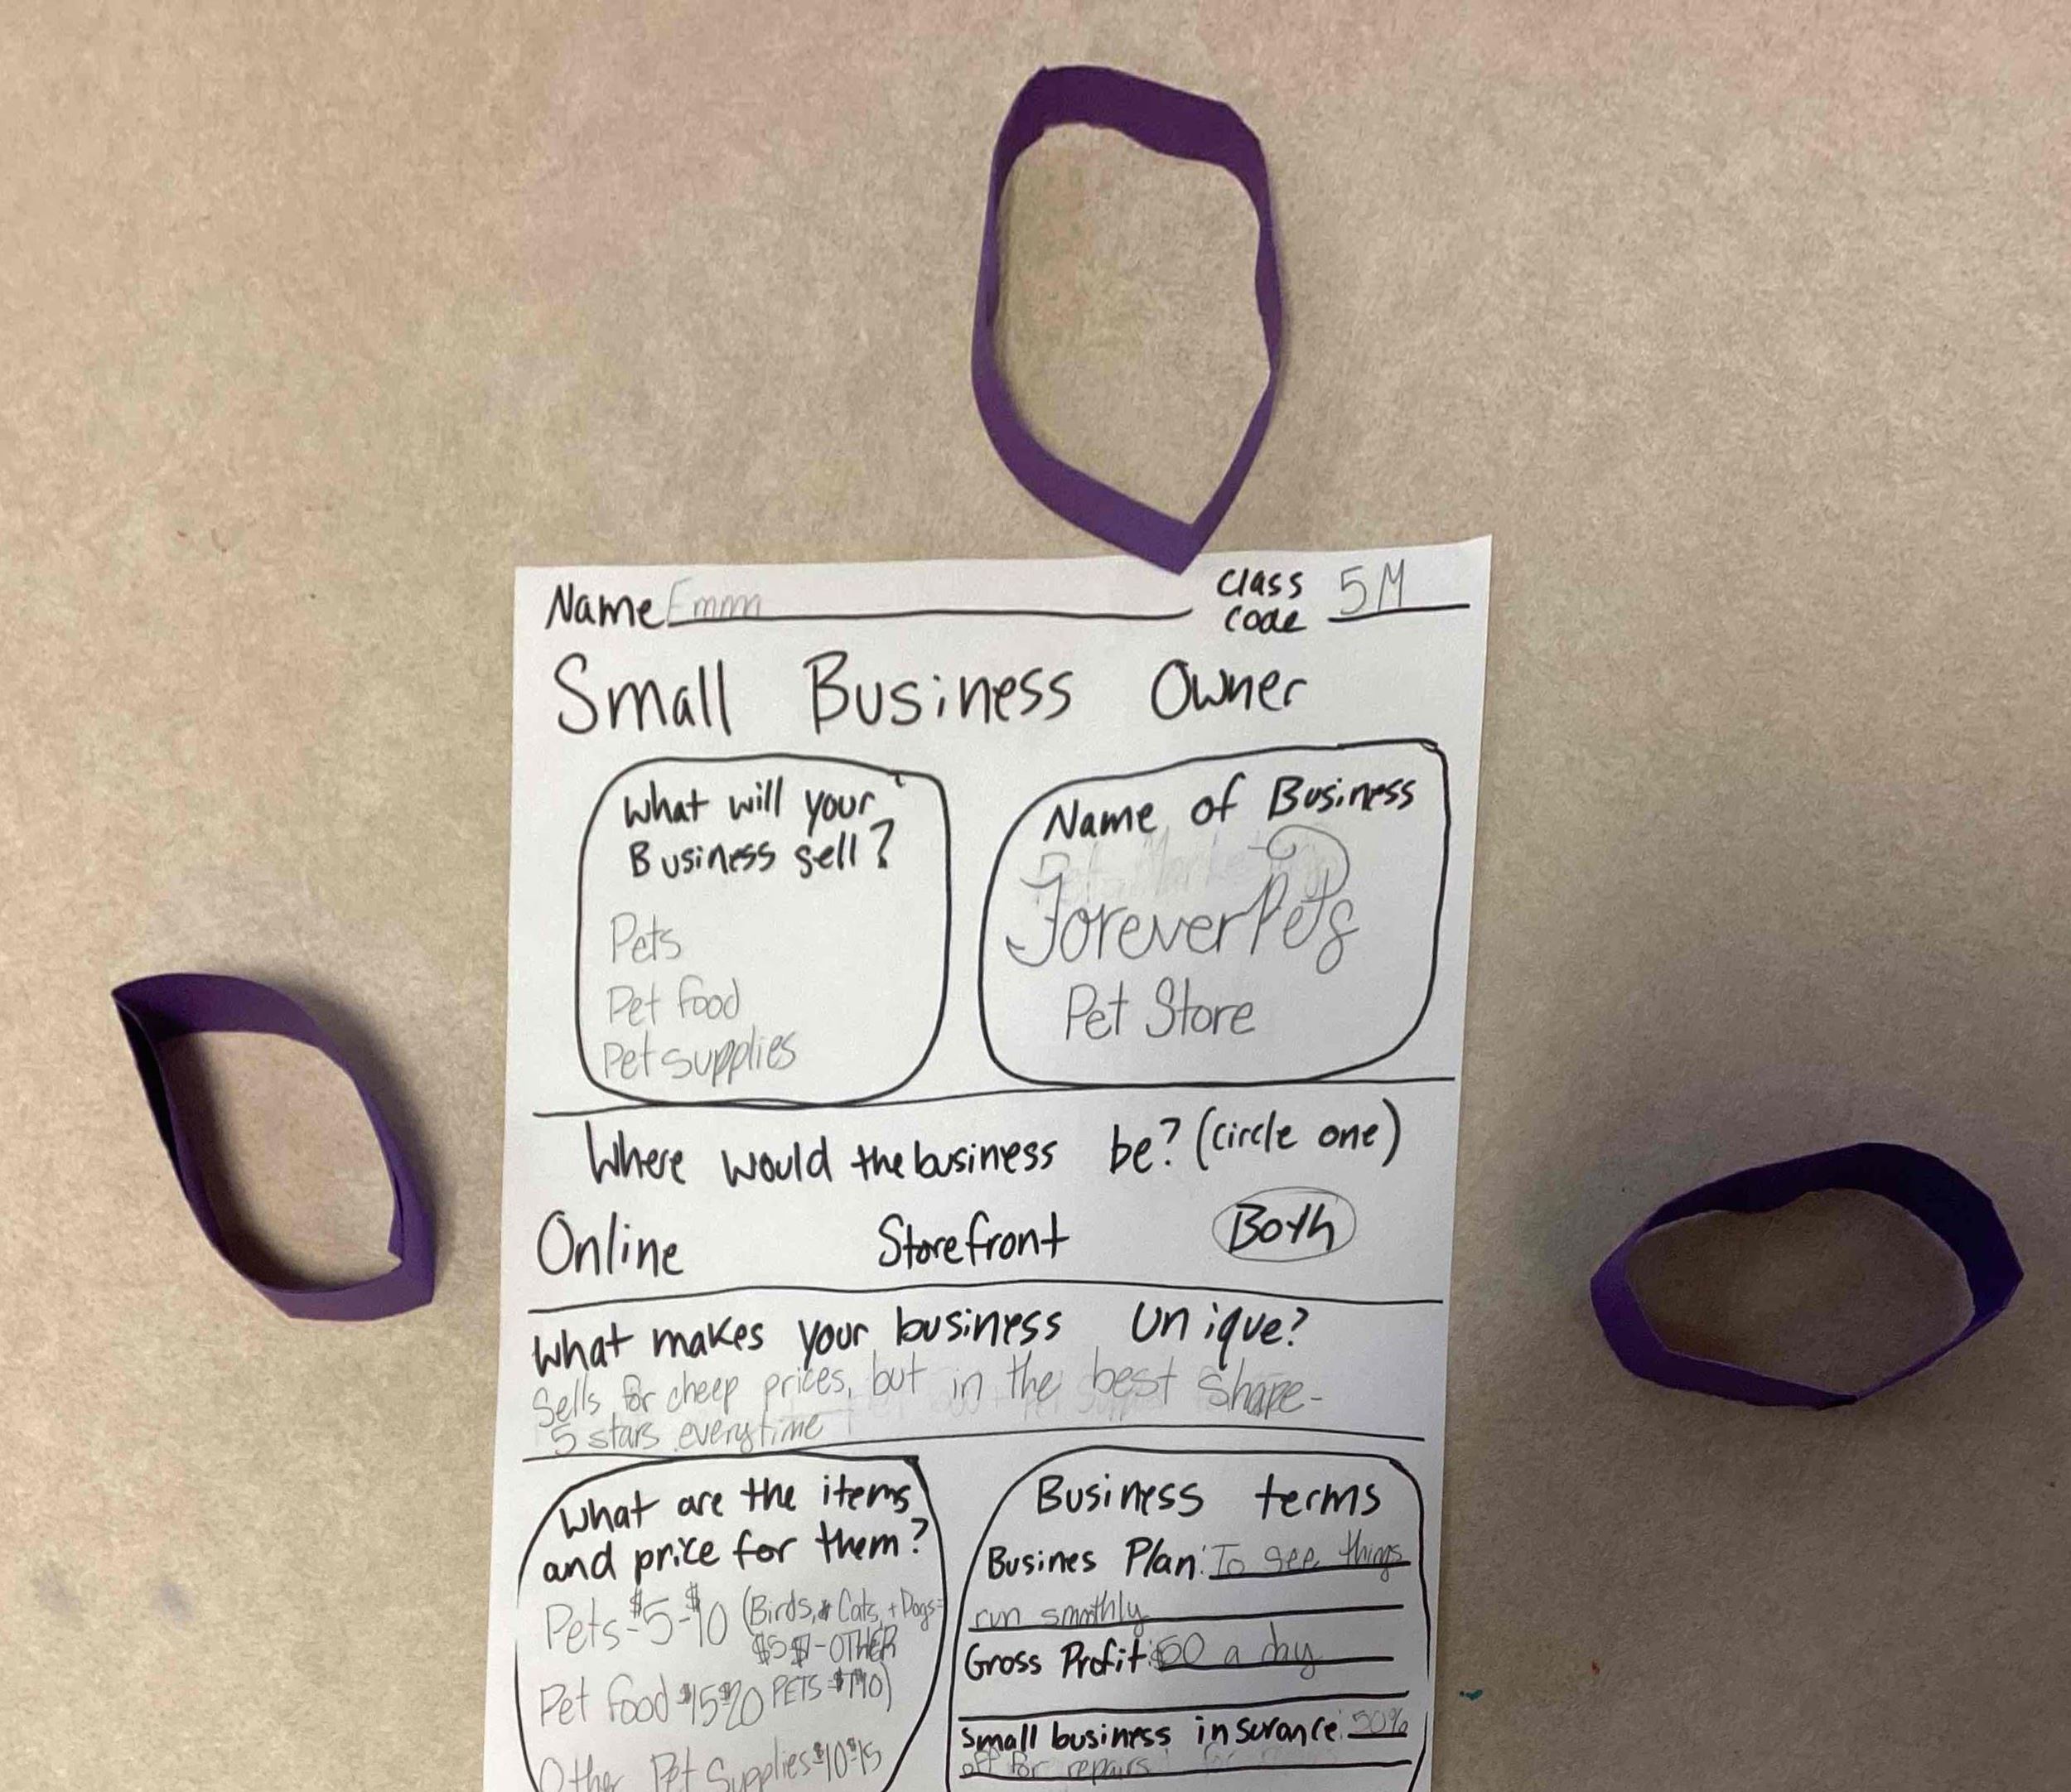 Name Emm
Class code 5M
Small Business Owner
What will your
Business sell?
Pets
Pet food
Pet supplies
Name of Business
ForeverPets
Pet Store
Where would the business be? (circle one)
Online Storefront Both
What makes your business unique?
Sells for cheep prices, but in the best shape-
5 stars everytime
What are the items
and price for them?
Pets-$5-$10 (Birds, Cats, + Dogs=
$5 $7-OTHER
Pet food $15-$20 PETS=$7-$10)
Other Pet Supplies $10-$15
Business terms
Busines Plan: To see things
run smothly
Gross Profit: $50 a day
Small business insurance: 50%
off for repairs